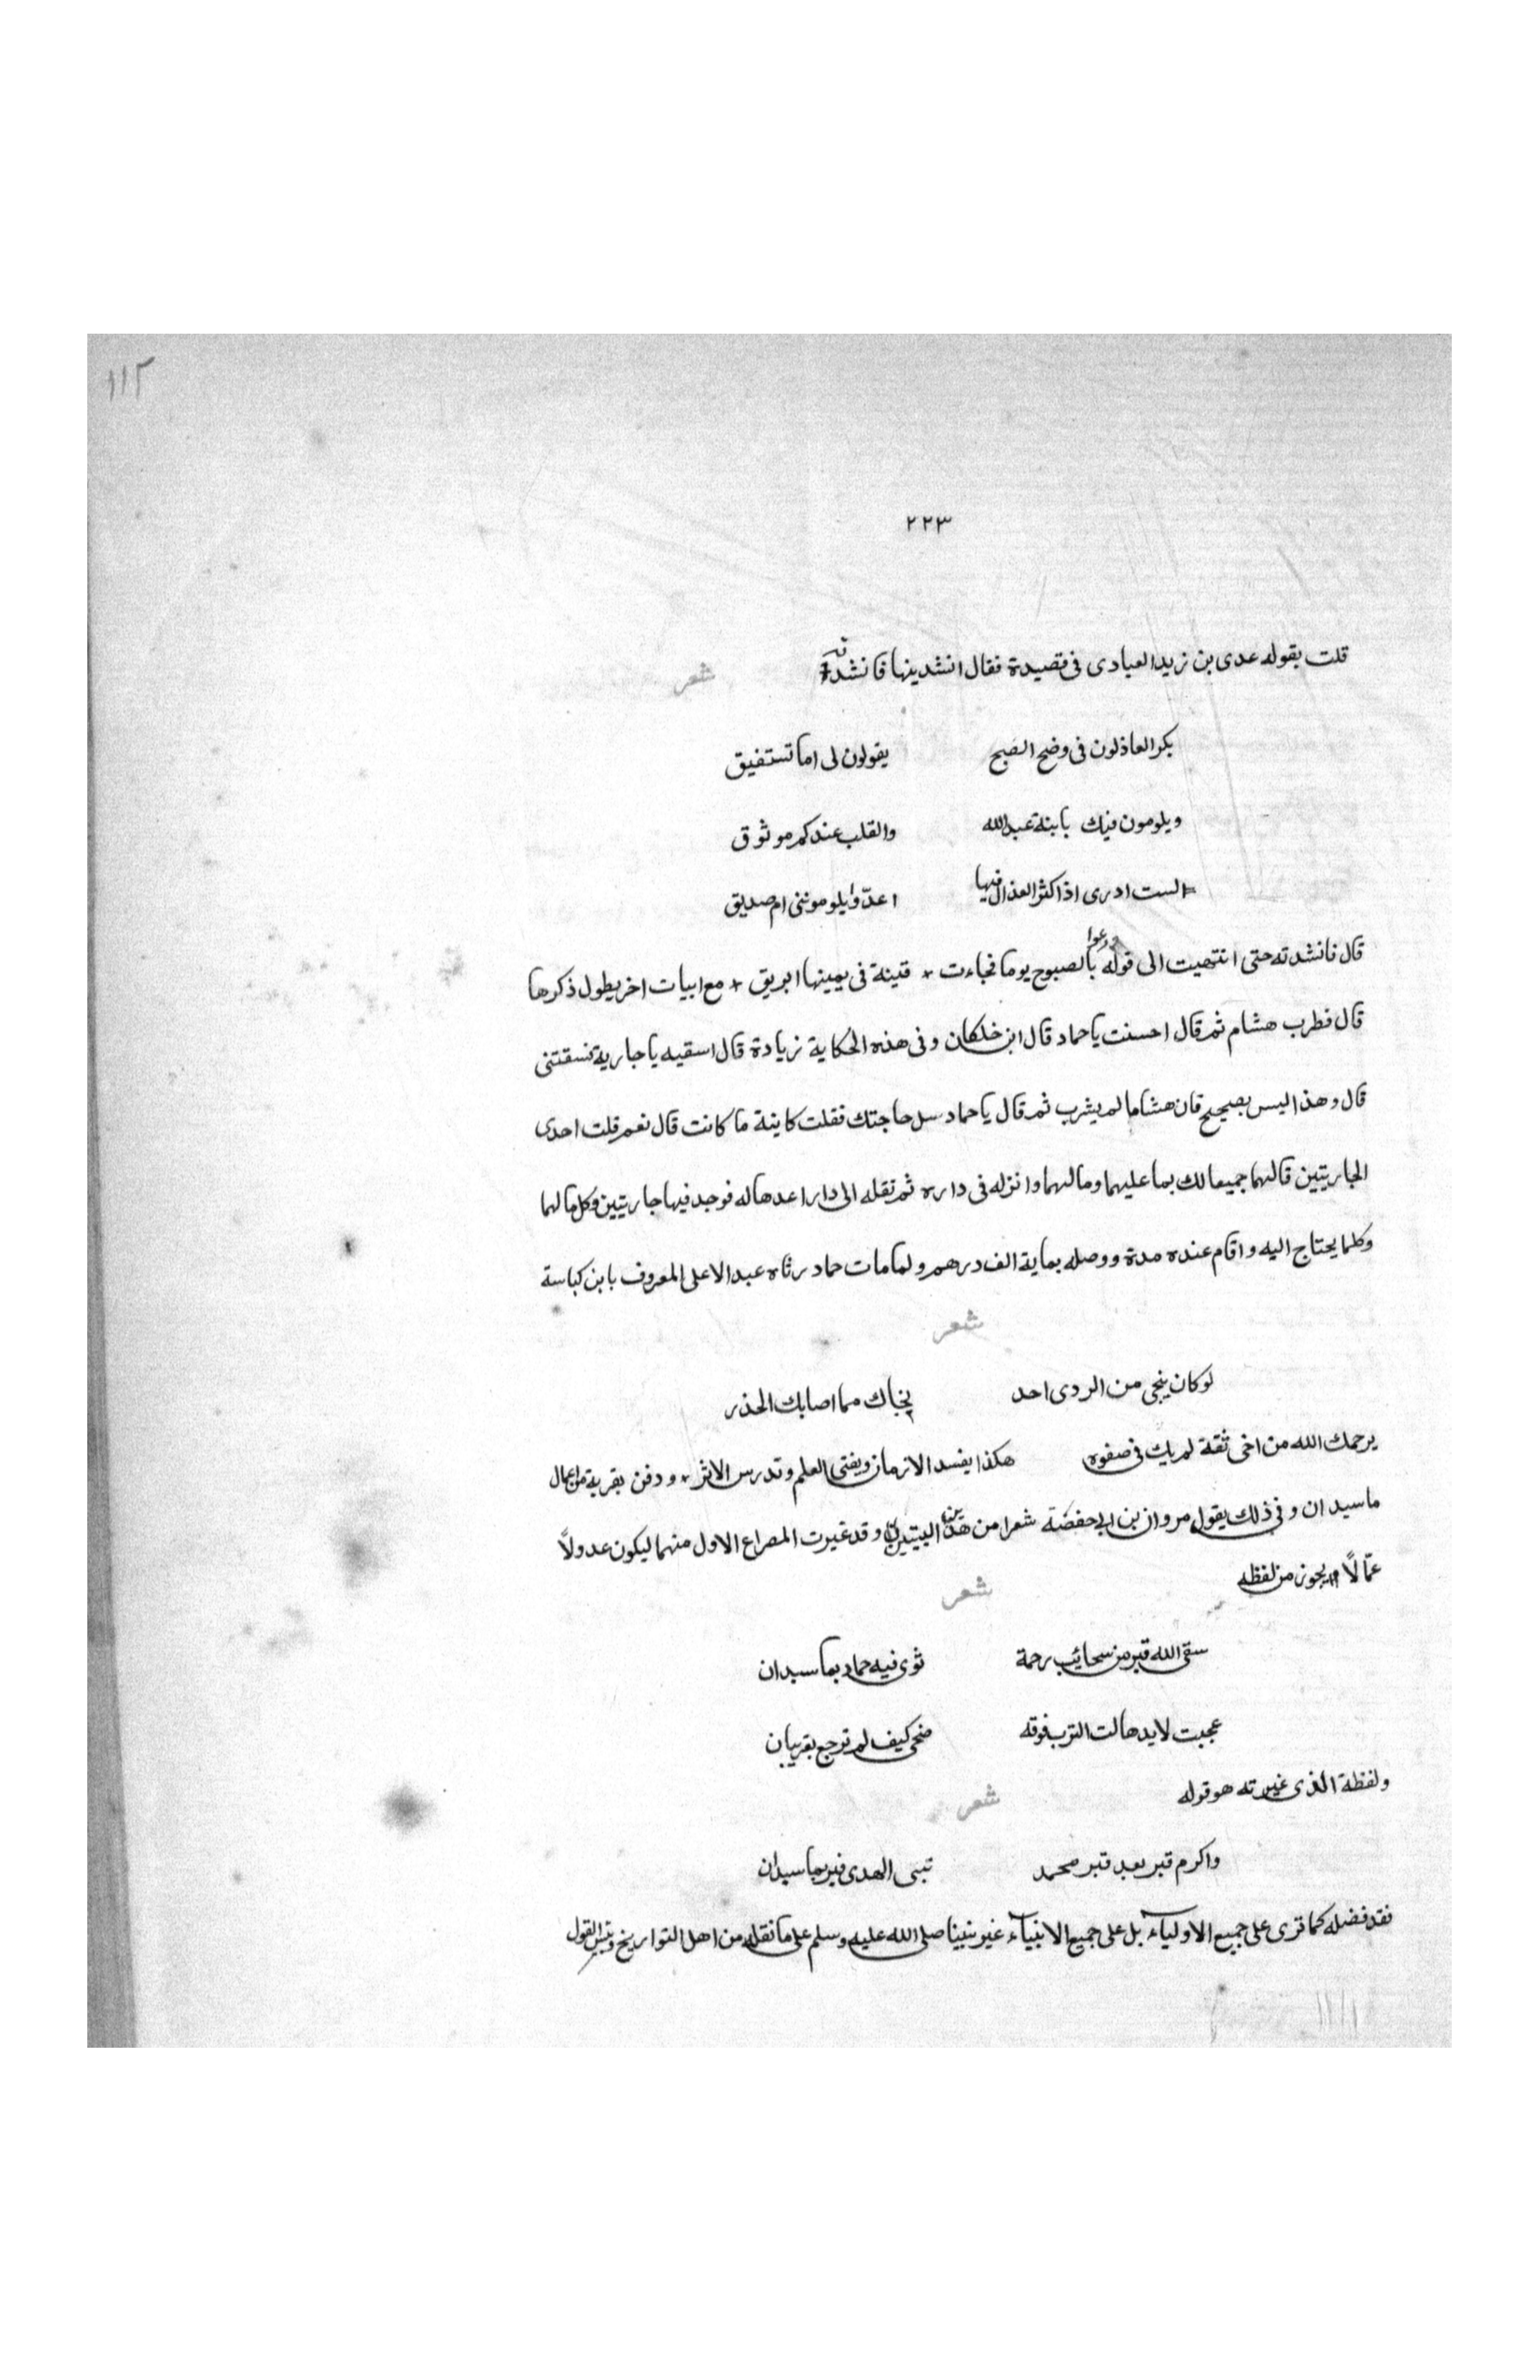 ١١٢
٢٢٣
قلت يقوله عدى بن زيد العبادى فى قصيدة فقال انشدينها فانشدته شعر
بكر العاذلون فى وضح الصبح يقولون لى اما تستفيق
ويلومون فيك يا بنة عبد الله والقلب عندكم موثوق
لست ادرى اذا كثر العذال فيها اعدوّا يلومونى ام صديق
قال فانشدته حتى انتهيت الى قوله ودعوا بالصبوح يوما فجاءت * قينة فى يمينها ابريق * مع ابيات اخر يطول ذكرها
قال فطرب هشام ثم قال احسنت يا حماد قال ابن خلكان وفى هذه الحكاية زيادة قال اسقيه يا جارية فسقتنى
قال وهذا ليس بصحيح فان هشاما لم يشرب ثم قال يا حماد سل حاجتك فقلت كاينة ما كانت قال نعم قلت احدى
الجاريتين قال هما جميعا لك بما عليهما وما لهما وانزله فى داره ثم نقله الى دار اعدها له فوجد فيها جاريتين وكل ما لهما
وكلما يحتاج اليه واقام عنده مدة ووصله بماية الف درهم ولما مات حماد رثاه عبد الاعلى المعروف بابن كباسة
شعر
لو كان ينجى من الردى احد نجاك مما اصابك الحذر
يرحمك الله من اخى ثقة لم يك فى صفوه هكذا يفسد الازمان ويفنى العلم وتدرس الاثر * ودفن بقرية من اعمال
ماسيدان وفى ذلك يقول مروان بن ابى حفصة شعرا من هذين البيتين وقد غيرت المصراع الاول منهما ليكون عدولاً
عمّا لا يجوز من لفظه شعر
سقى الله قبر من سحايب رحمة ثوى فيه حماد بماسبدان
عجبت لايد هالت الترب فوقه ضحى كيف لم ترجع بقريبان
ولفظة الذى غيرته هو قوله شعر
واكرم قبر بعد قبر محمد نبى الهدى قبر بماسبدان
فقد فضله كما ترى على جميع الاولياء بل على جميع الانبياء غير نبينا صلى الله عليه وسلم على ما نقله من اهل التواريخ وبئس القول